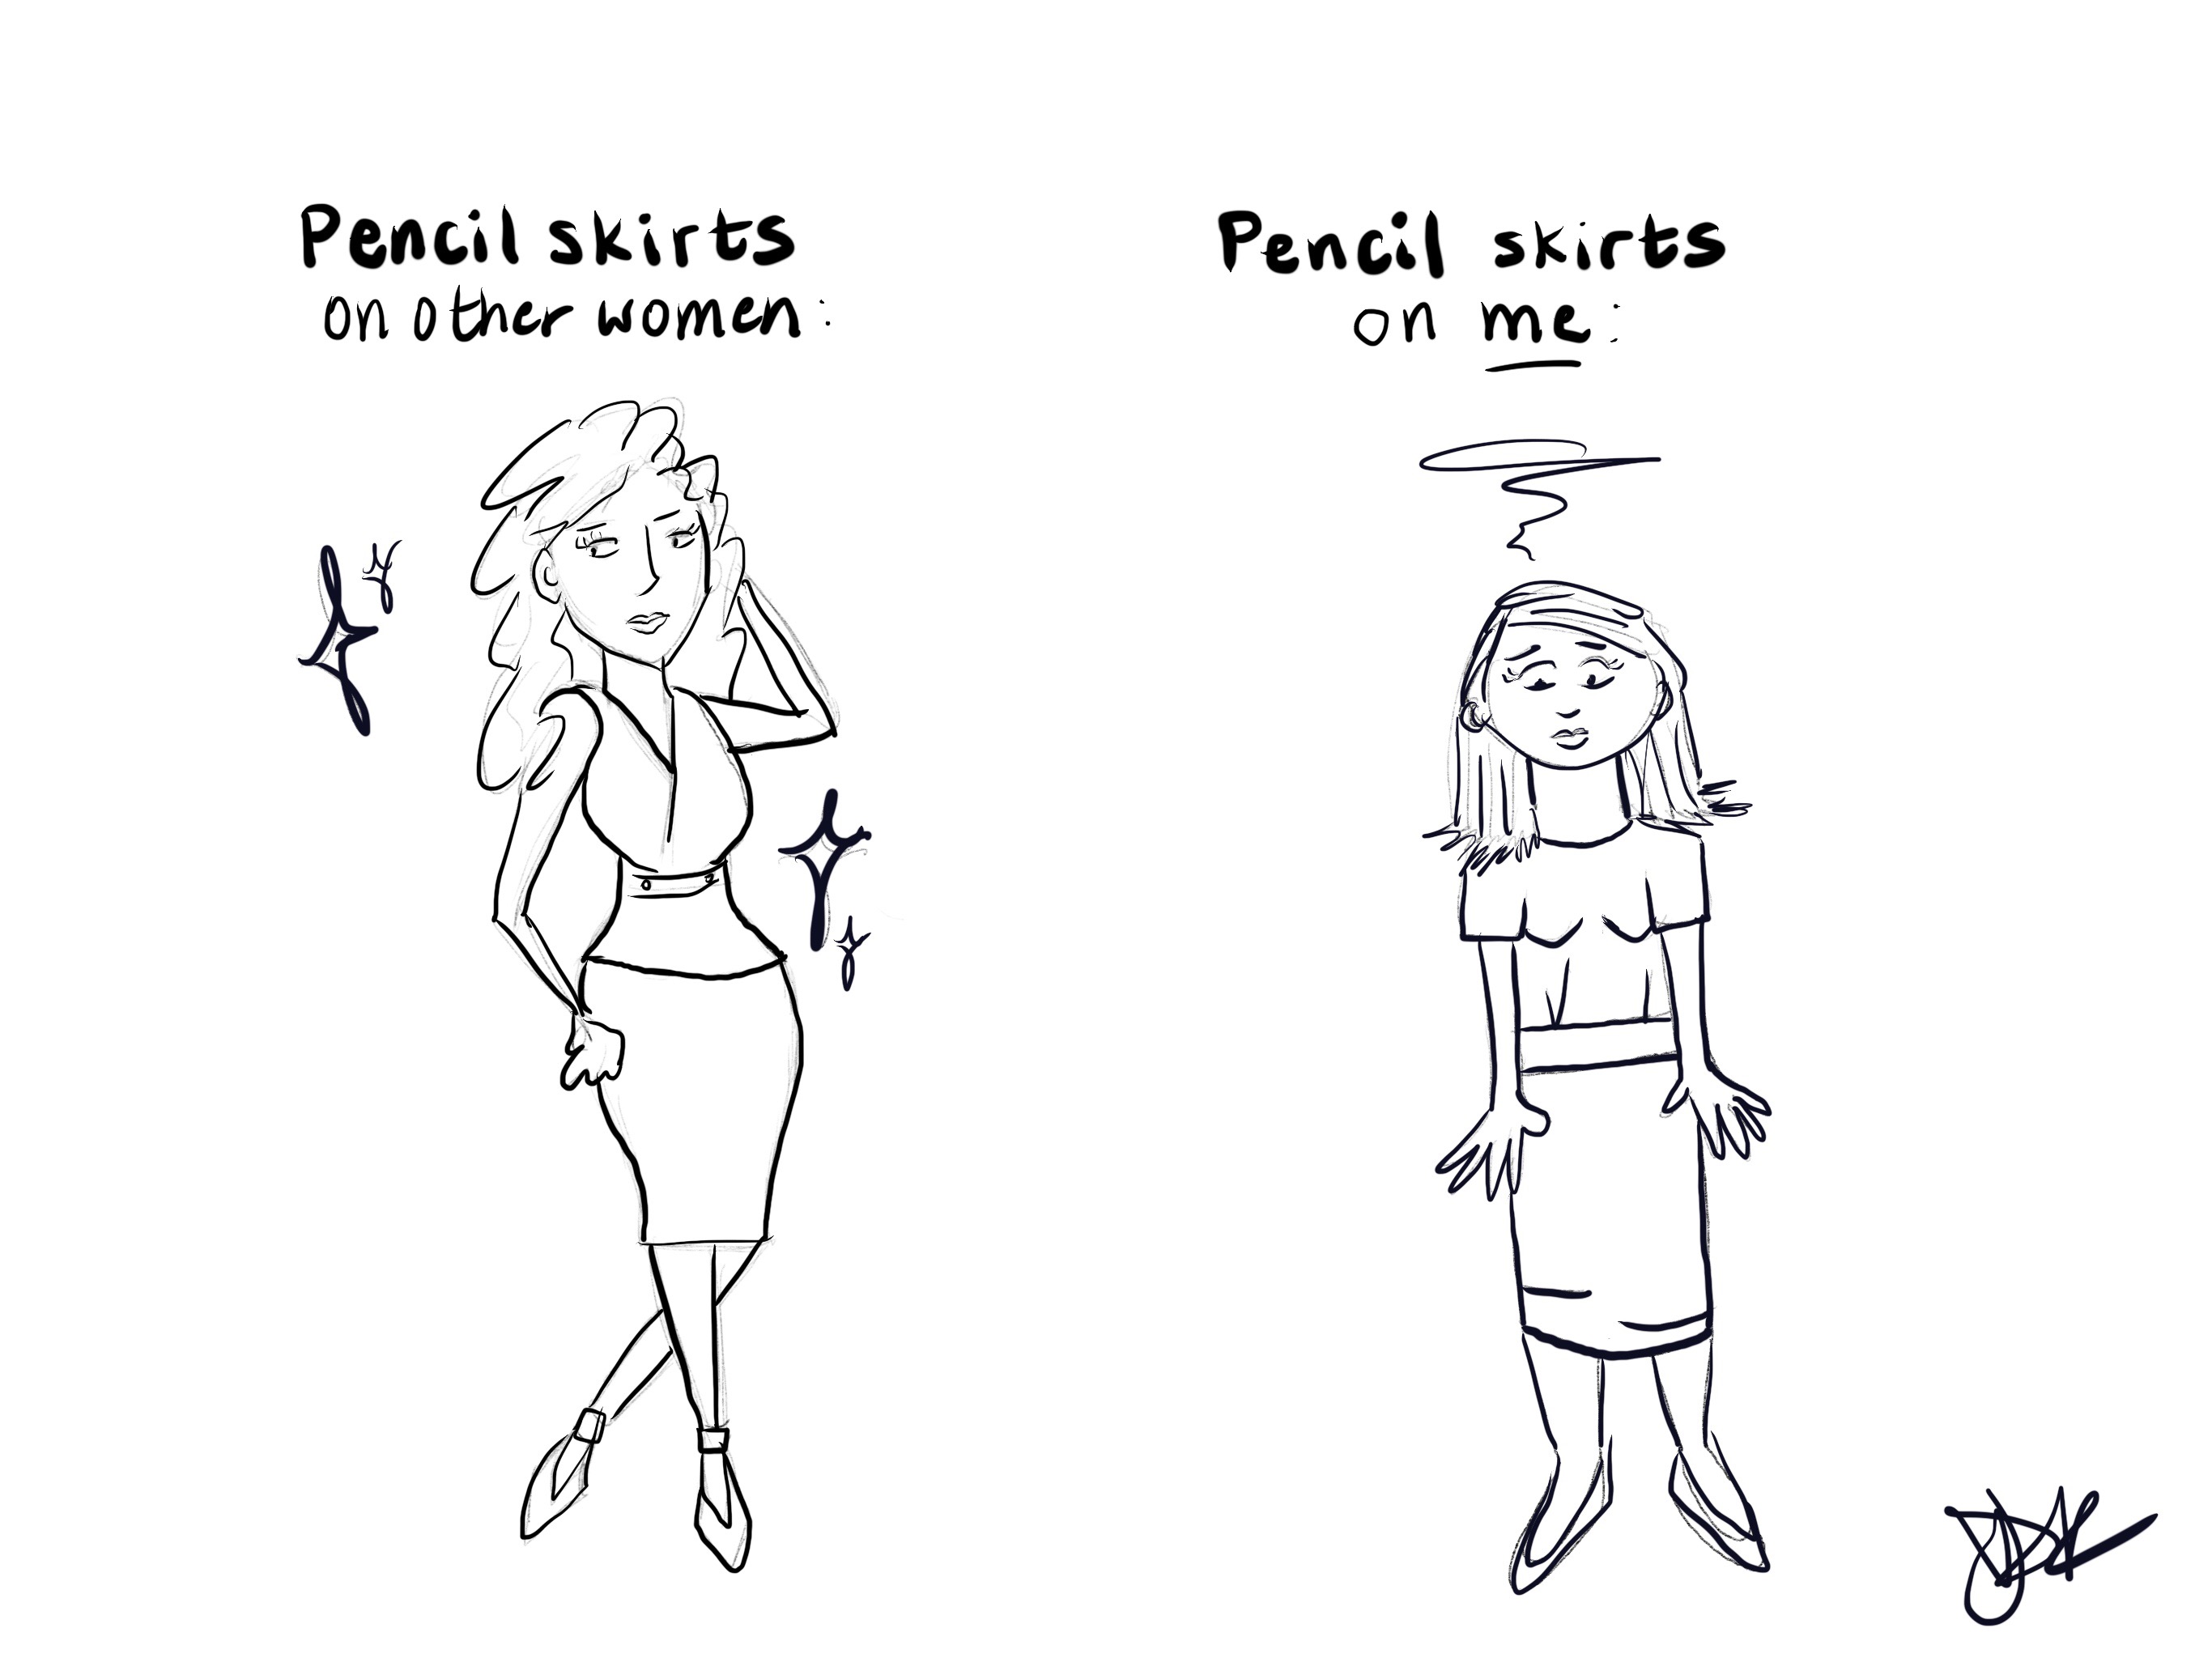 Pencil skirts
on other women:
Pencil skirts
on me: